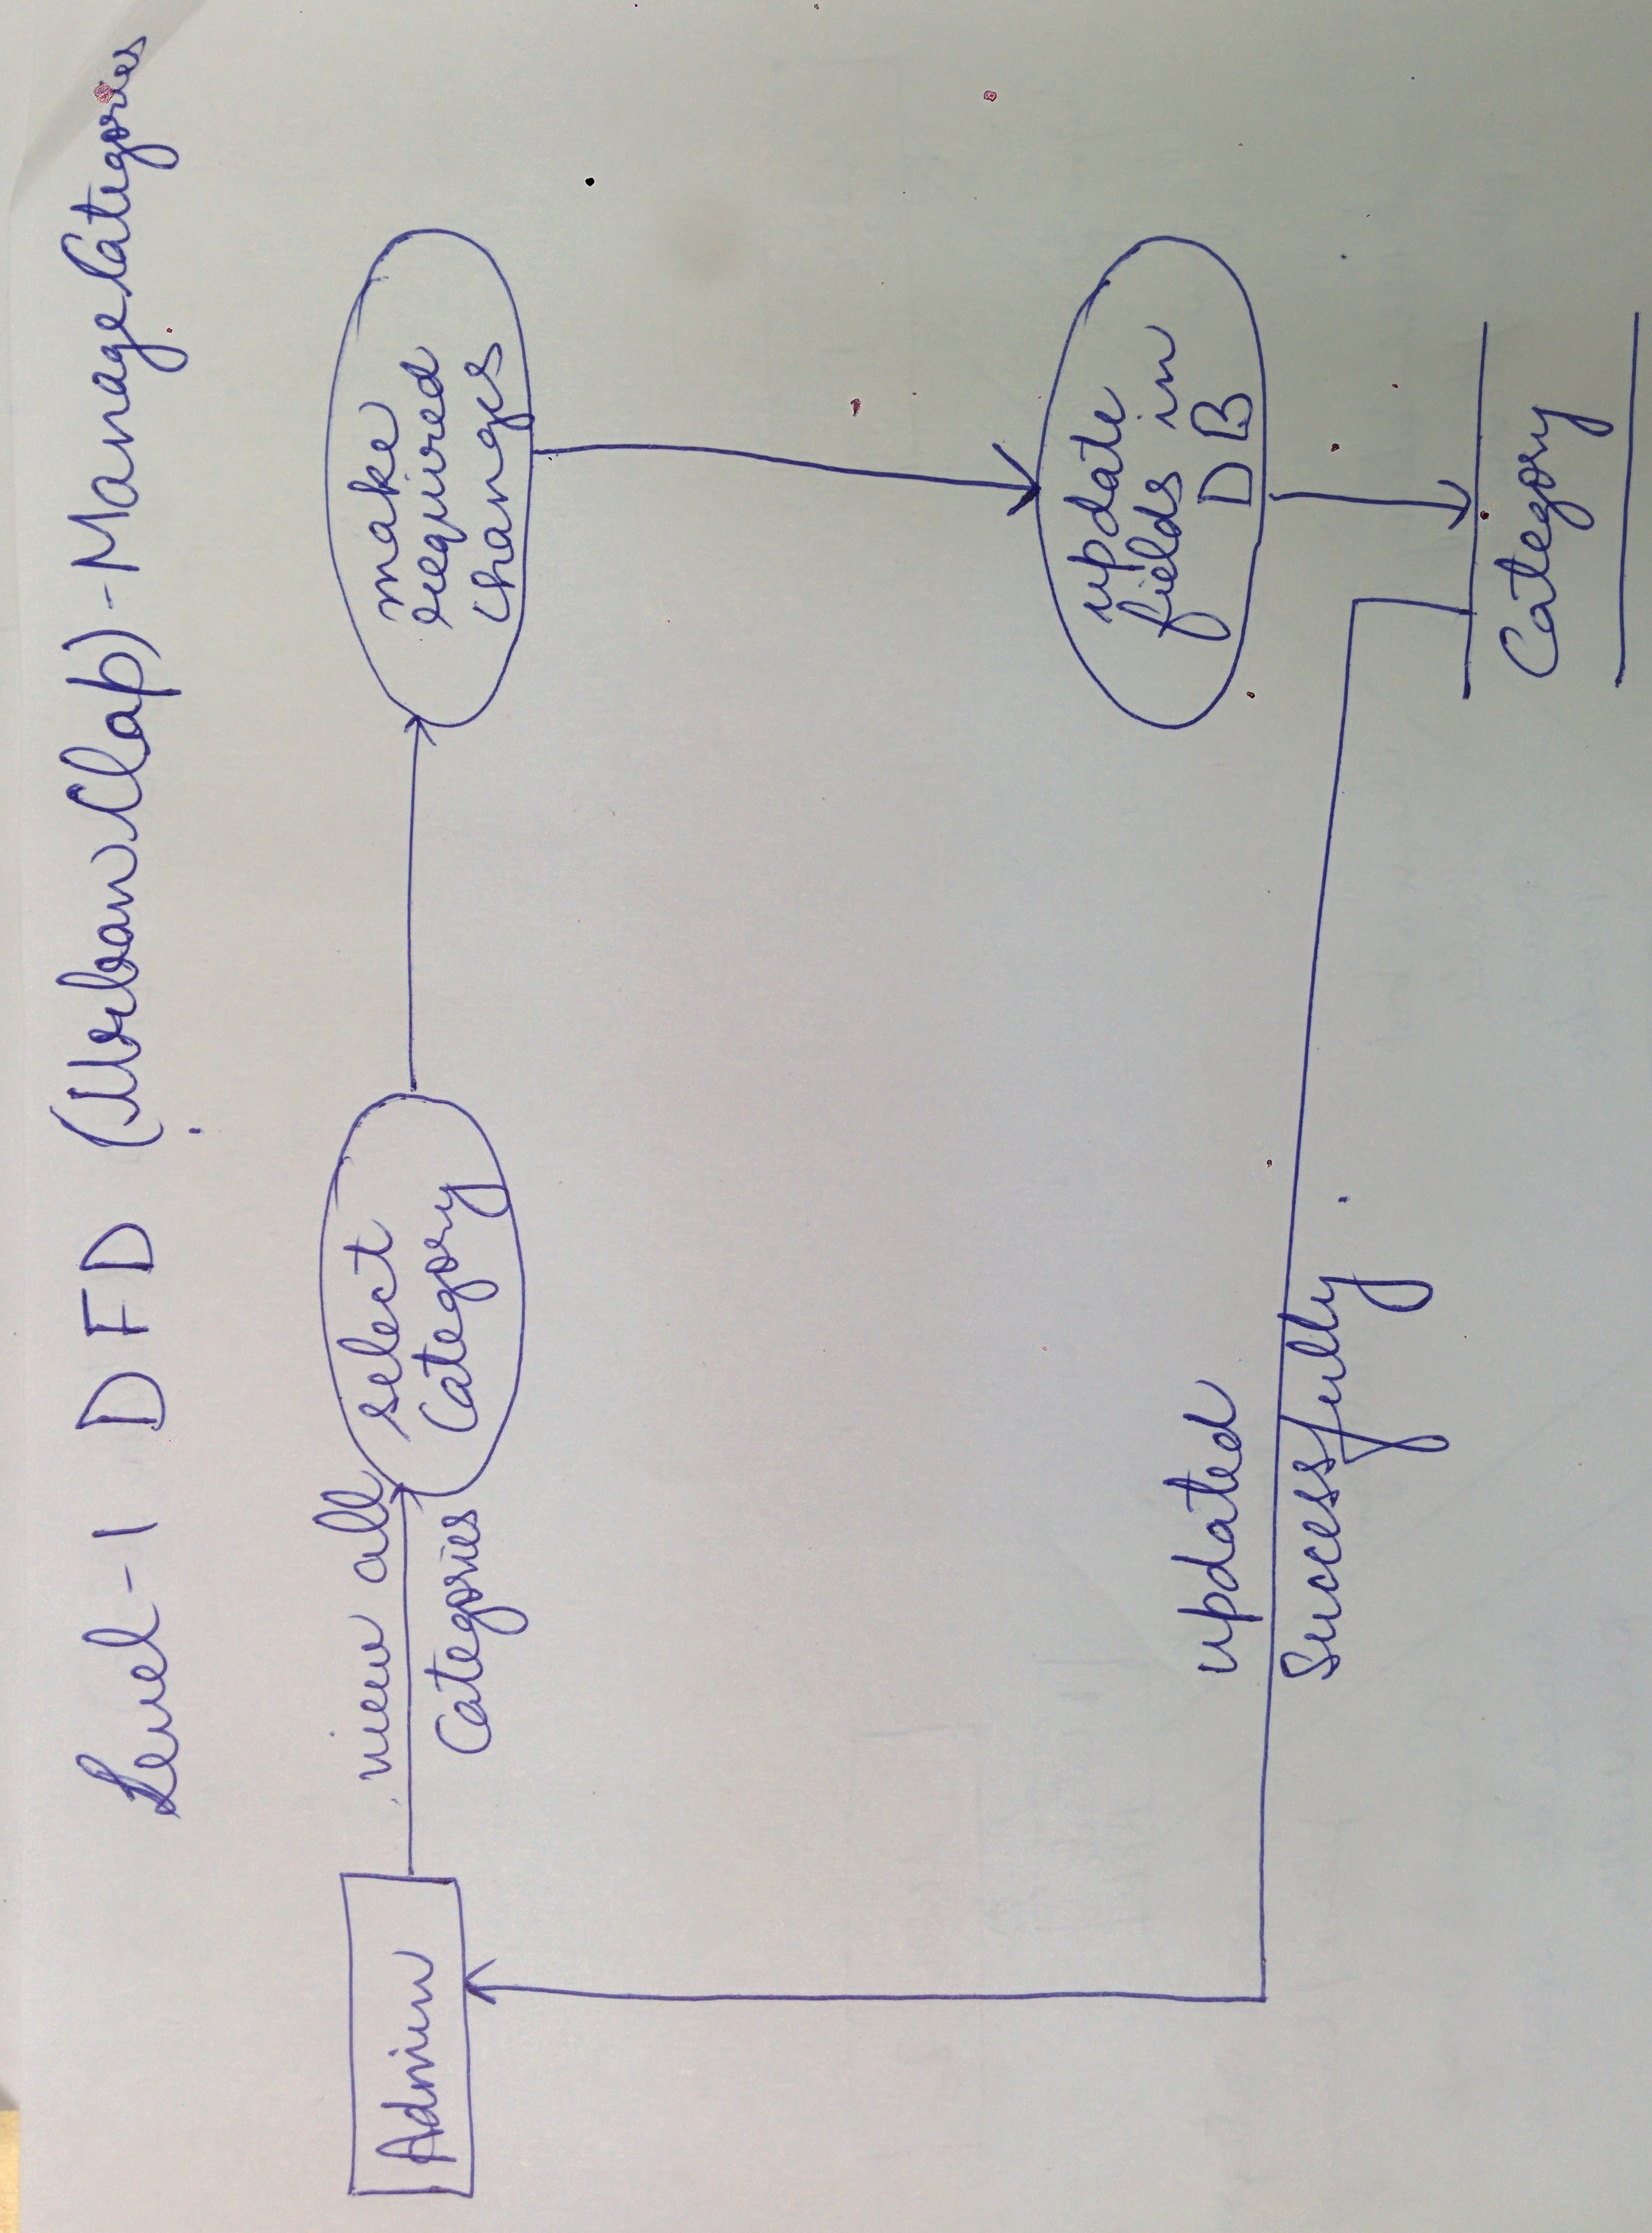 Level-1 DFD (UrbanClap)-Manage Categories
Admin
view all
Categories
select
Category
make
required
changes
update
fields in
DB
updated
Successfully.
Category